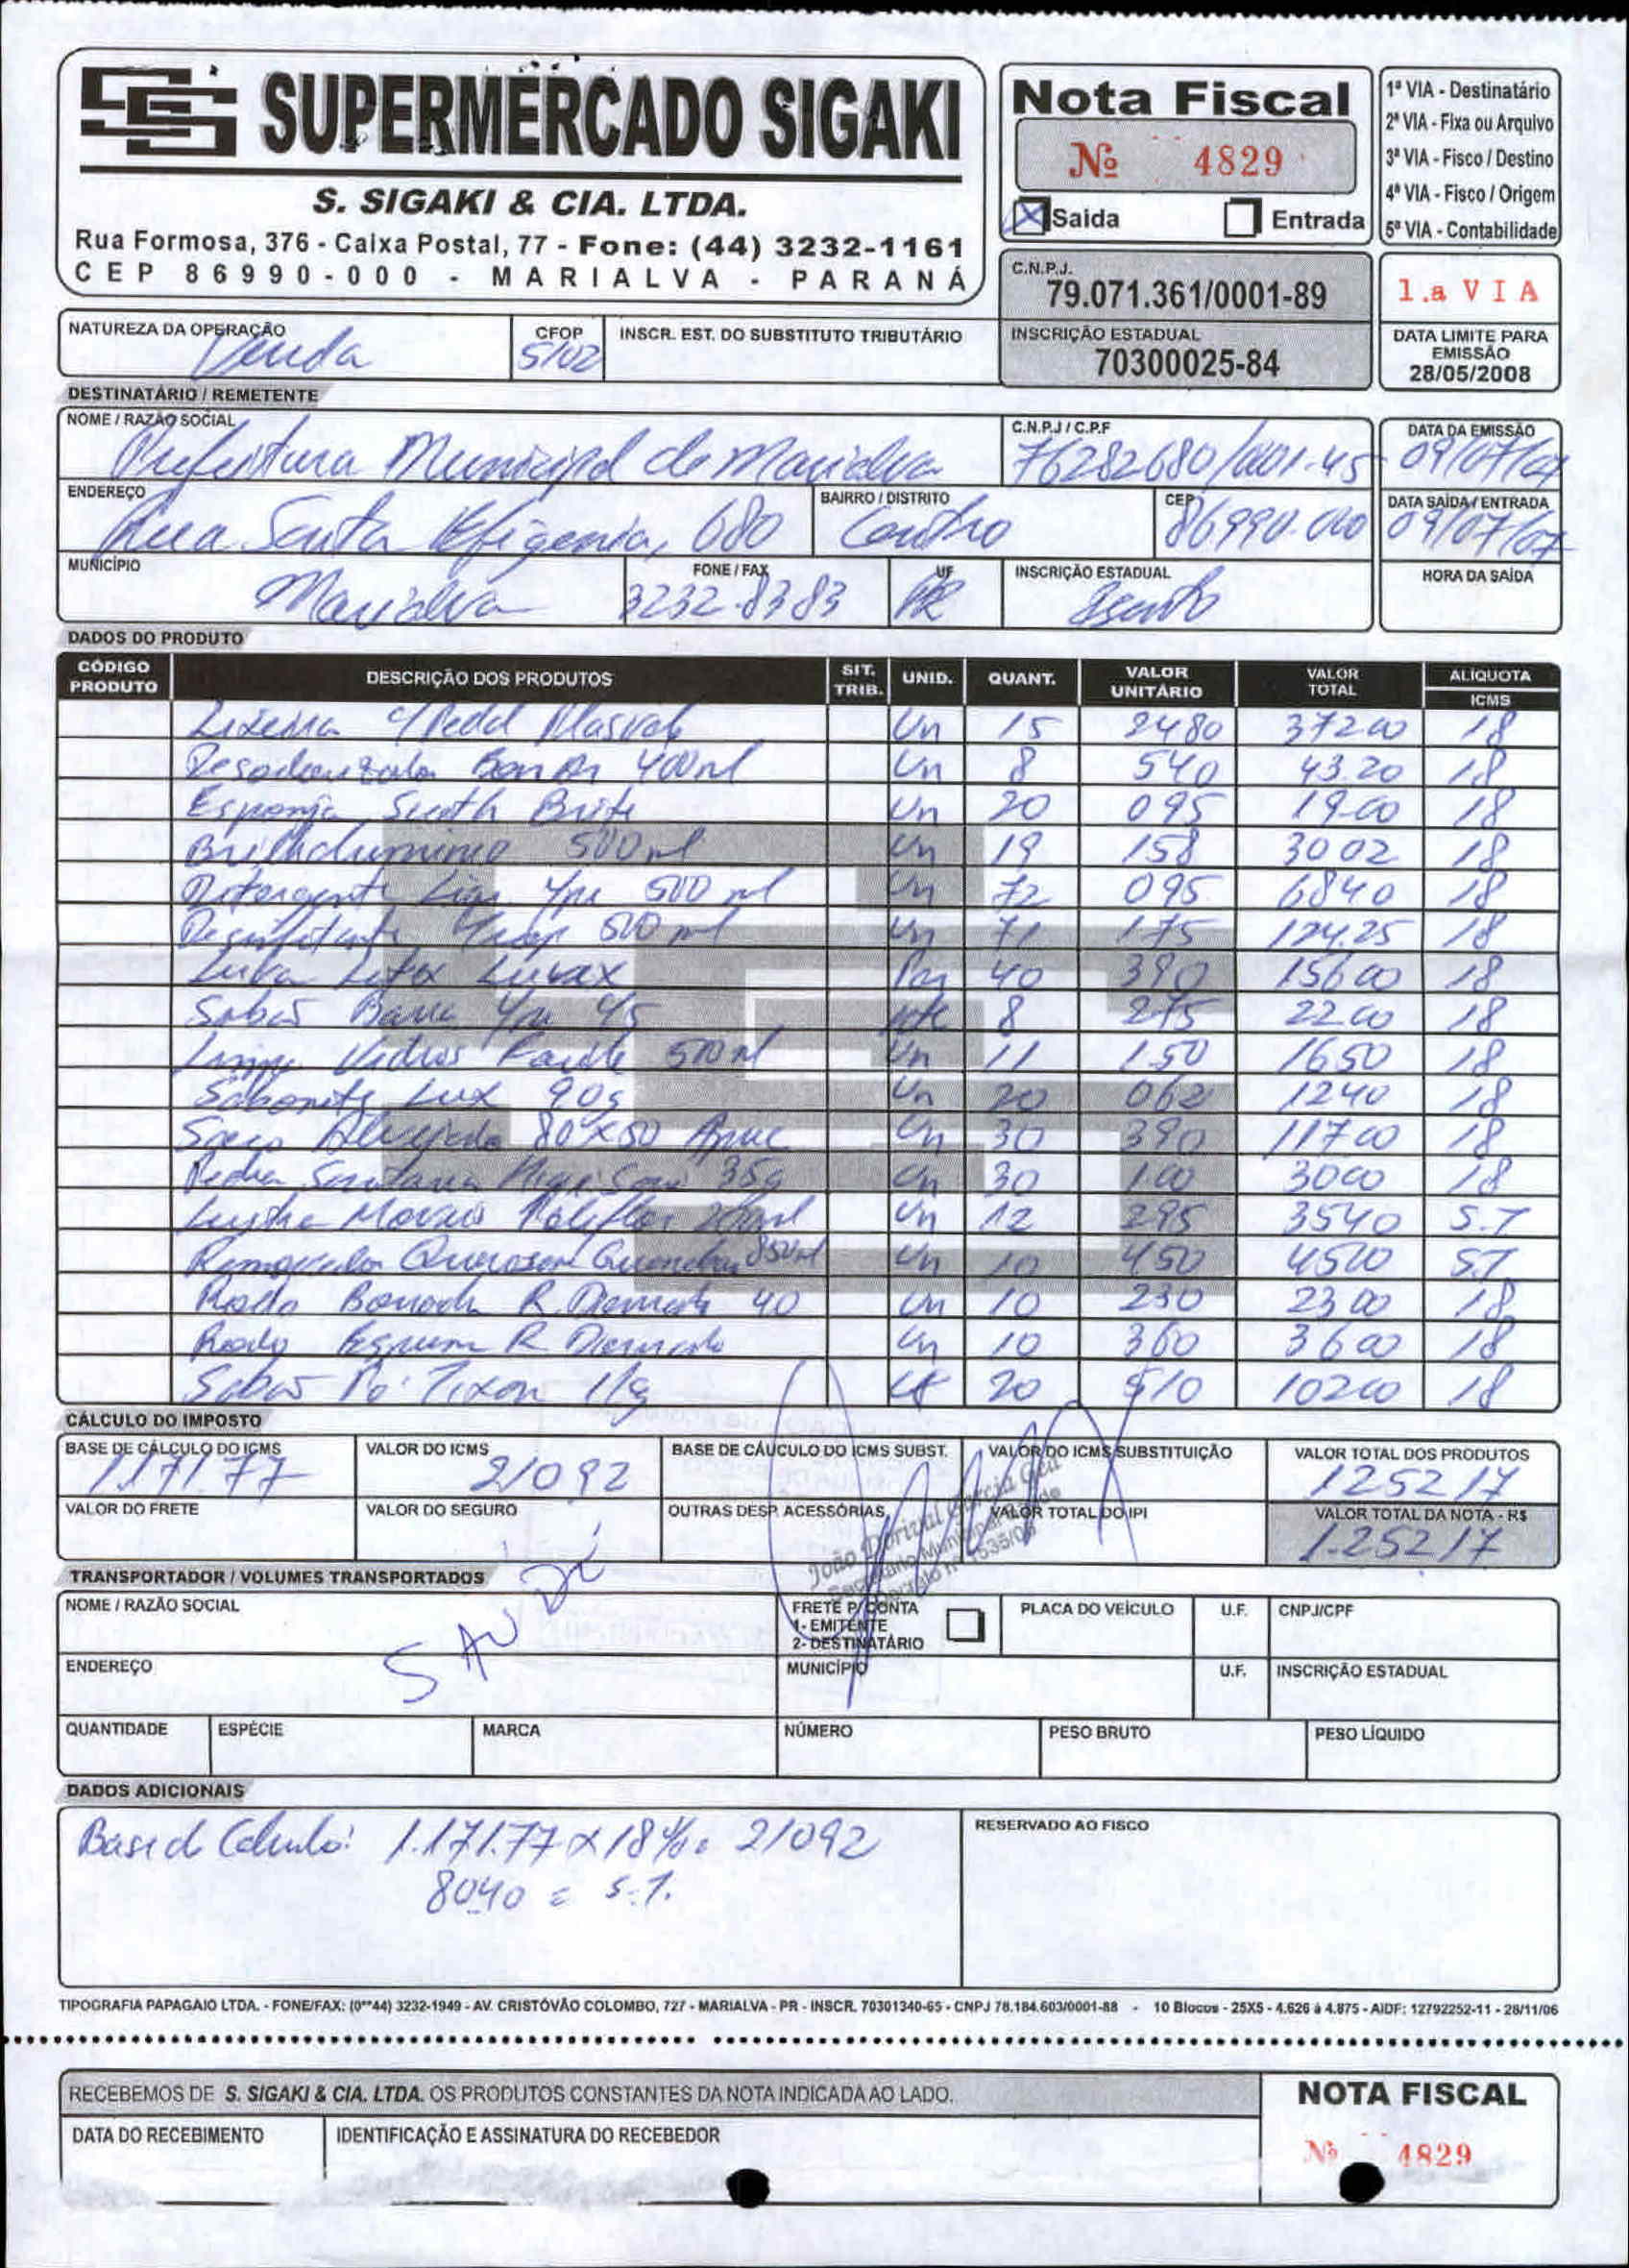 SUPERMERCADO SIGAKI
S. SIGAKI & CIA. LTDA.
Rua Formosa, 376 - Caixa Postal, 77 - Fone: (44) 3232-1161
CEP 86990-000 - MARIALVA - PARANÁ
Nota Fiscal
Nº 4829
X Saida Entrada
1ª VIA - Destinatário
2ª VIA - Fixa ou Arquivo
3ª VIA - Fisco / Destino
4ª VIA - Fisco / Origem
5ª VIA - Contabilidade
C.N.P.J.
79.071.361/0001-89
1.a VIA
NATUREZA DA OPERAÇÃO Venda
CFOP 5102
INSCR. EST. DO SUBSTITUTO TRIBUTÁRIO
INSCRIÇÃO ESTADUAL
70300025-84
DATA LIMITE PARA
EMISSÃO
28/05/2008
DESTINATÁRIO / REMETENTE
NOME / RAZÃO SOCIAL Prefeitura Municipal de Marialva
C.N.P.J / C.P.F 76282680/0001-45
DATA DA EMISSÃO 09/07/07
ENDEREÇO Rua Santa Efigenia, 680
BAIRRO / DISTRITO Centro
CEP 86990.000
DATA SAÍDA / ENTRADA 09/07/07
MUNICÍPIO Marialva
FONE / FAX 3232-8383
UF PR
INSCRIÇÃO ESTADUAL Isento
HORA DA SAÍDA
DADOS DO PRODUTO
CÓDIGO PRODUTO DESCRIÇÃO DOS PRODUTOS SIT. TRIB. UNID. QUANT. VALOR UNITÁRIO VALOR TOTAL ALÍQUOTA ICMS
Lixeira c/ Pedal Un 15 2480 37200 18
400ml Un 8 540 43.20 18
Esponja Brite Un 20 095 1900 18
Brilhaluminio 500ml Un 19 158 3002 18
Detergente Liq. Ype 500 ml Un 72 095 6840 18
Desinfetante 500 ml Un 71 175 124.25 18
Luva Latex Luvax Par 40 390 15600 18
Sabão Barra Ype c/5 pcte 8 275 22.00 18
Limpa Vidros 500ml Un 11 1.50 1650 18
Sabonete Lux 90g Un 20 062 1240 18
Saco Alvejado 80x50 Un 30 390 11700 18
Pedra Sanitaria 35g Un 30 1.00 3000 18
Lustra Moveis Poliflor 200ml Un 12 295 3540 S.T
Removedor 850ml Un 10 450 4500 S.T
Rodo Borracha R. 40 Un 10 230 2300 18
Rodo Espuma R. Un 10 360 3600 18
Sabão Pó Tixan 1kg 20 510 10200 18
CÁLCULO DO IMPOSTO
BASE DE CÁLCULO DO ICMS 1.171.77
VALOR DO ICMS 21092
BASE DE CÁUCULO DO ICMS SUBST.
VALOR DO ICMS SUBSTITUIÇÃO
VALOR TOTAL DOS PRODUTOS 125217
VALOR DO FRETE
VALOR DO SEGURO
OUTRAS DESP. ACESSÓRIAS
VALOR TOTAL DO IPI
VALOR TOTAL DA NOTA - R$ 1.25217
João Dorival Garcia
TRANSPORTADOR / VOLUMES TRANSPORTADOS
NOME / RAZÃO SOCIAL
SAUDE
FRETE P/ CONTA
1- EMITENTE
2- DESTINATÁRIO
PLACA DO VEÍCULO U.F. CNPJ/CPF
ENDEREÇO MUNICÍPIO U.F. INSCRIÇÃO ESTADUAL
QUANTIDADE ESPÉCIE MARCA NÚMERO PESO BRUTO PESO LÍQUIDO
DADOS ADICIONAIS
Base de Calculo: 1.171.77 x 18% = 21092
8040 = S.T.
RESERVADO AO FISCO
TIPOGRAFIA PAPAGAIO LTDA. - FONE/FAX: (0**44) 3232-1949 - AV. CRISTÓVÃO COLOMBO, 727 - MARIALVA - PR - INSCR. 70301340-65 - CNPJ 78.184.603/0001-88 - 10 Blocos - 25X5 - 4.626 à 4.875 - AIDF: 12792252-11 - 28/11/06
RECEBEMOS DE S. SIGAKI & CIA. LTDA. OS PRODUTOS CONSTANTES DA NOTA INDICADA AO LADO.
DATA DO RECEBIMENTO IDENTIFICAÇÃO E ASSINATURA DO RECEBEDOR
NOTA FISCAL
Nº 4829